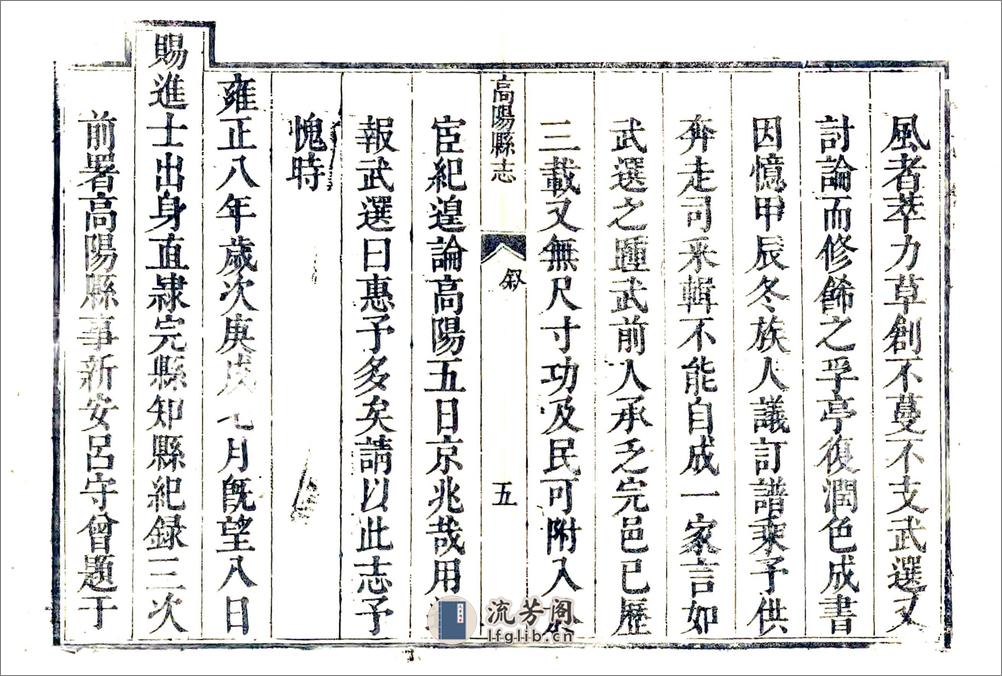 風者萃力草創不蔓不支武選又
討論而修餙之孚亭復潤色成書
因憶甲辰冬族人議訂譜乘予供
奔走司釆輯不能自成一家言如
武選之踵武前人承乏完邑已歷
三載又無尺寸功及民可附入
宦紀遑論高陽五日京兆哉用
報武選曰惠予多矣請以此志予
愧時
雍正八年歲次庚戌七月旣望八日
賜進士出身直隷完縣知縣紀録三次
前署高陽縣事新安呂守曾題于
高陽縣志
叙
五
流芳阁
lfglib.cn